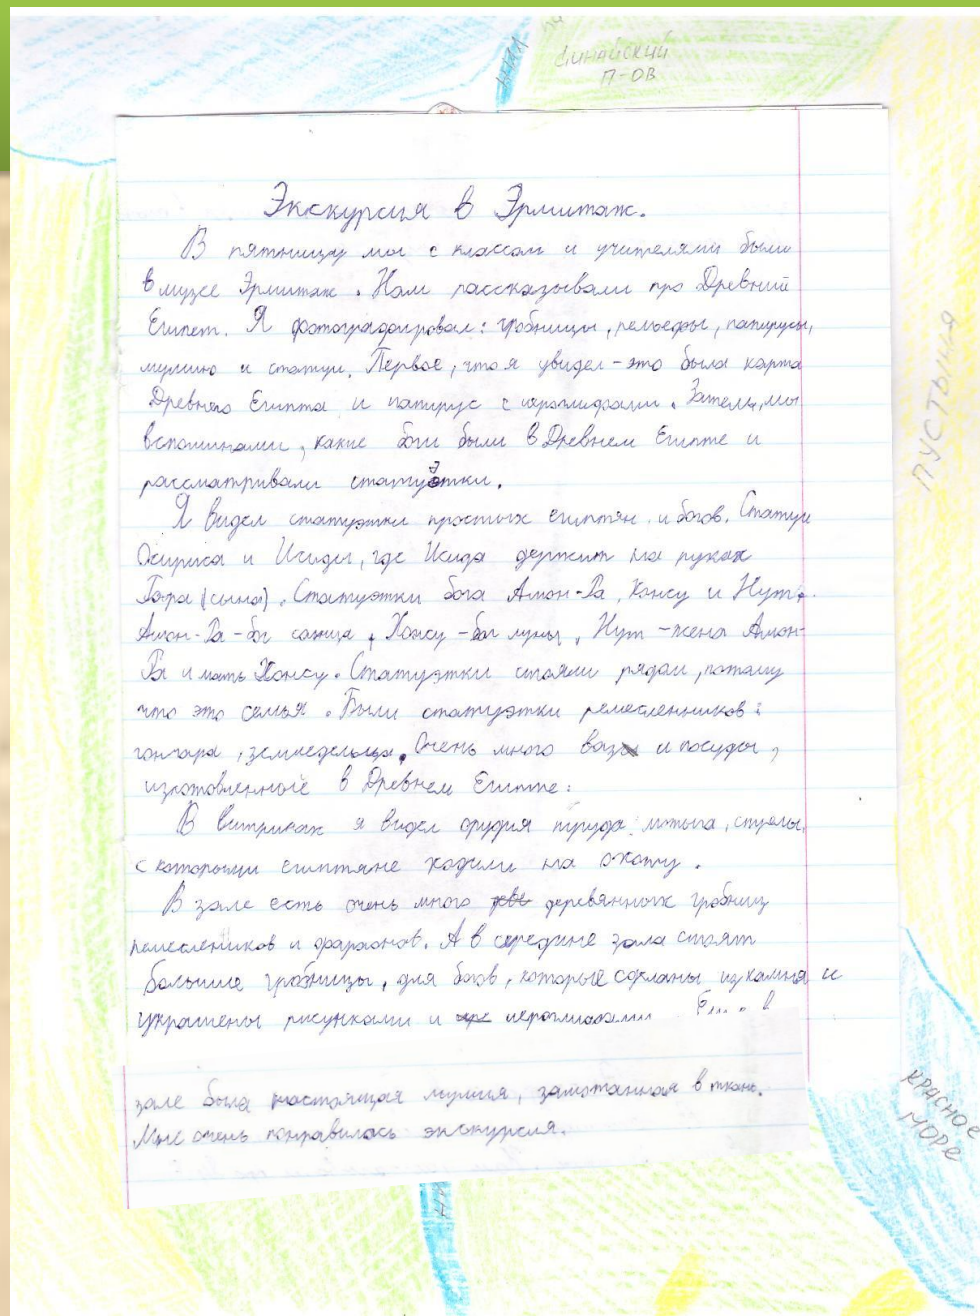 НИЛ
Синайский
П-ОВ
Экскурсия в Эрмитаж.
В пятницу мы с классом и учителями были
в музее Эрмитаж. Нам рассказывали про Древний
Египет. Я фотографировал: гробницы, рельефы, папирусы,
мумию и статуи. Первое, что я увидел - это была карта
Древнего Египта и папирус с иероглифами. Затем, мы
вспоминали, какие боги были в Древнем Египте и
рассматривали статуэтки.
Я видел статуэтки простых египтян и богов. Статуи
Осириса и Исиды, где Исида держит на руках
Гора (сына). Статуэтки бога Амон-Ра, Хонсу и Нут.
Амон-Ра - бог солнца, Хонсу - бог луны, Нут - жена Амон-
Ра и мать Хонсу. Статуэтки стояли рядом, потому
что это семья. Были статуэтки ремесленников:
гончара, земледельца. Очень много ваз и посуды,
изготовленной в Древнем Египте.
В витринах я видел орудия труда: мотыга, стрелы,
с которыми египтяне ходили на охоту.
В зале есть очень много деревянных гробниц
ремеслеников и фараонов. А в середине зала стоят
большие гробницы, для богов, которые сделаны из камня и
украшены рисунками и иероглифами. в
зале была настоящая мумия, замотанная в ткань.
Мне очень понравилась экскурсия.
ПУСТЫНЯ
КРАСНОЕ
МОРЕ